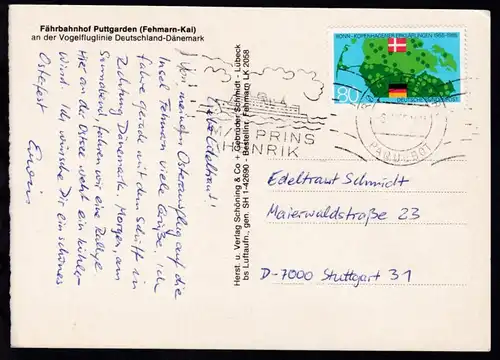 Fährbahnhof Puttgarden (Fehmarn-Kai)
an der Vogelfluglinie Deutschland-Dänemark
Liebe Edeltraut!
Von meinem Osterausflug auf die
Insel Fehmarn viele Grüße. Ich
fahre gerade mit dem Schiff in
Richtung Dänemark. Morgen, am
Sonnabend, fahren wir eine Rallye.
Hier an der Ostsee weht ein kühler
Wind. Ich wünsche Dir ein schönes
Osterfest
Herst. u. Verlag Schöning & Co + Gebrüder Schmidt - Lübeck
bs Luftaufn., gen. SH 1-42690 - Bestellnr. Fehmarn LK 2058
M/F PRINS
HENRIK
BONN-KOPENHAGENER ERKLÄRUNGEN 1955-1985
80
DEUTSCHE BUNDESPOST
PAQUEBOT
Edeltraut Schmidt
Maierwaldstraße 23
D-7000 Stuttgart 31